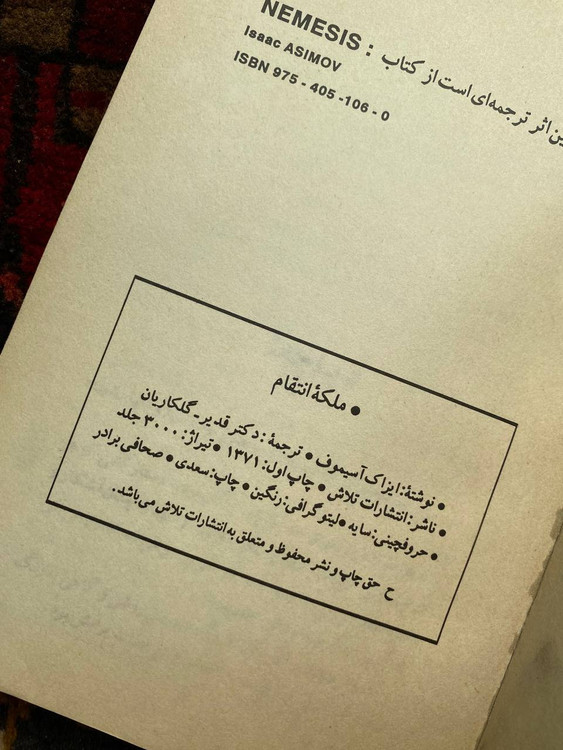 ین اثر ترجمه‌ای است از کتاب : NEMESIS
Isaac ASIMOV
ISBN 975 - 405 -106 - 0
● ملکهٔ انتقام
● نوشتهٔ: ایزاک آسیموف ● ترجمهٔ: دکتر قدیر ـ گلکاریان
● ناشر: انتشارات تلاش ● چاپ اول: ۱۳۷۱ ● تیراژ: ۳۰۰۰ جلد
● حروفچینی: سایه ● لیتوگرافی: رنگین ● چاپ: سعدی ● صحافی برادر
ح حق چاپ و نشر محفوظ و متعلق به انتشارات تلاش می‌باشد.